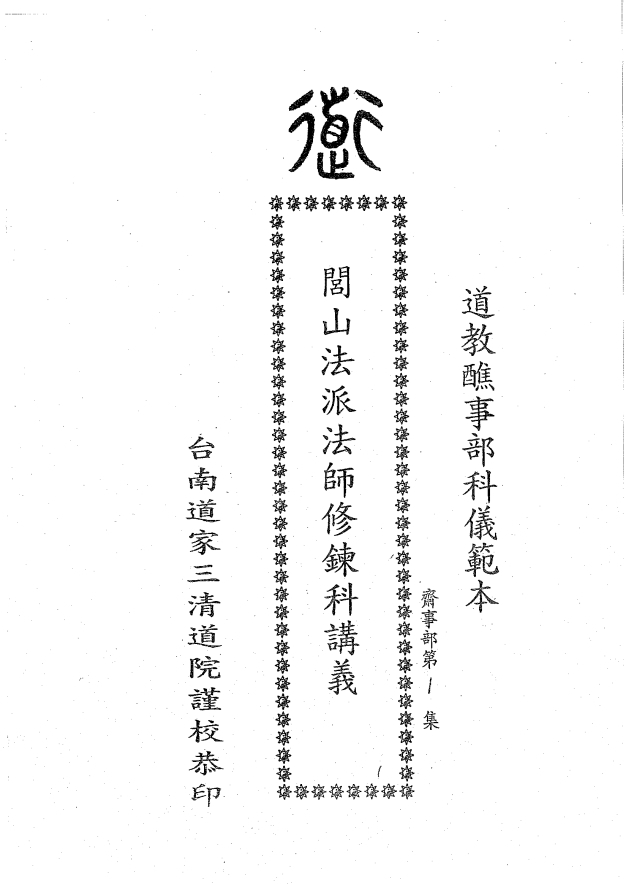 道
道教醮事部科儀範本
齋事部第1集
閭山法派法師修鍊科講義
台南道家三清道院謹校恭印